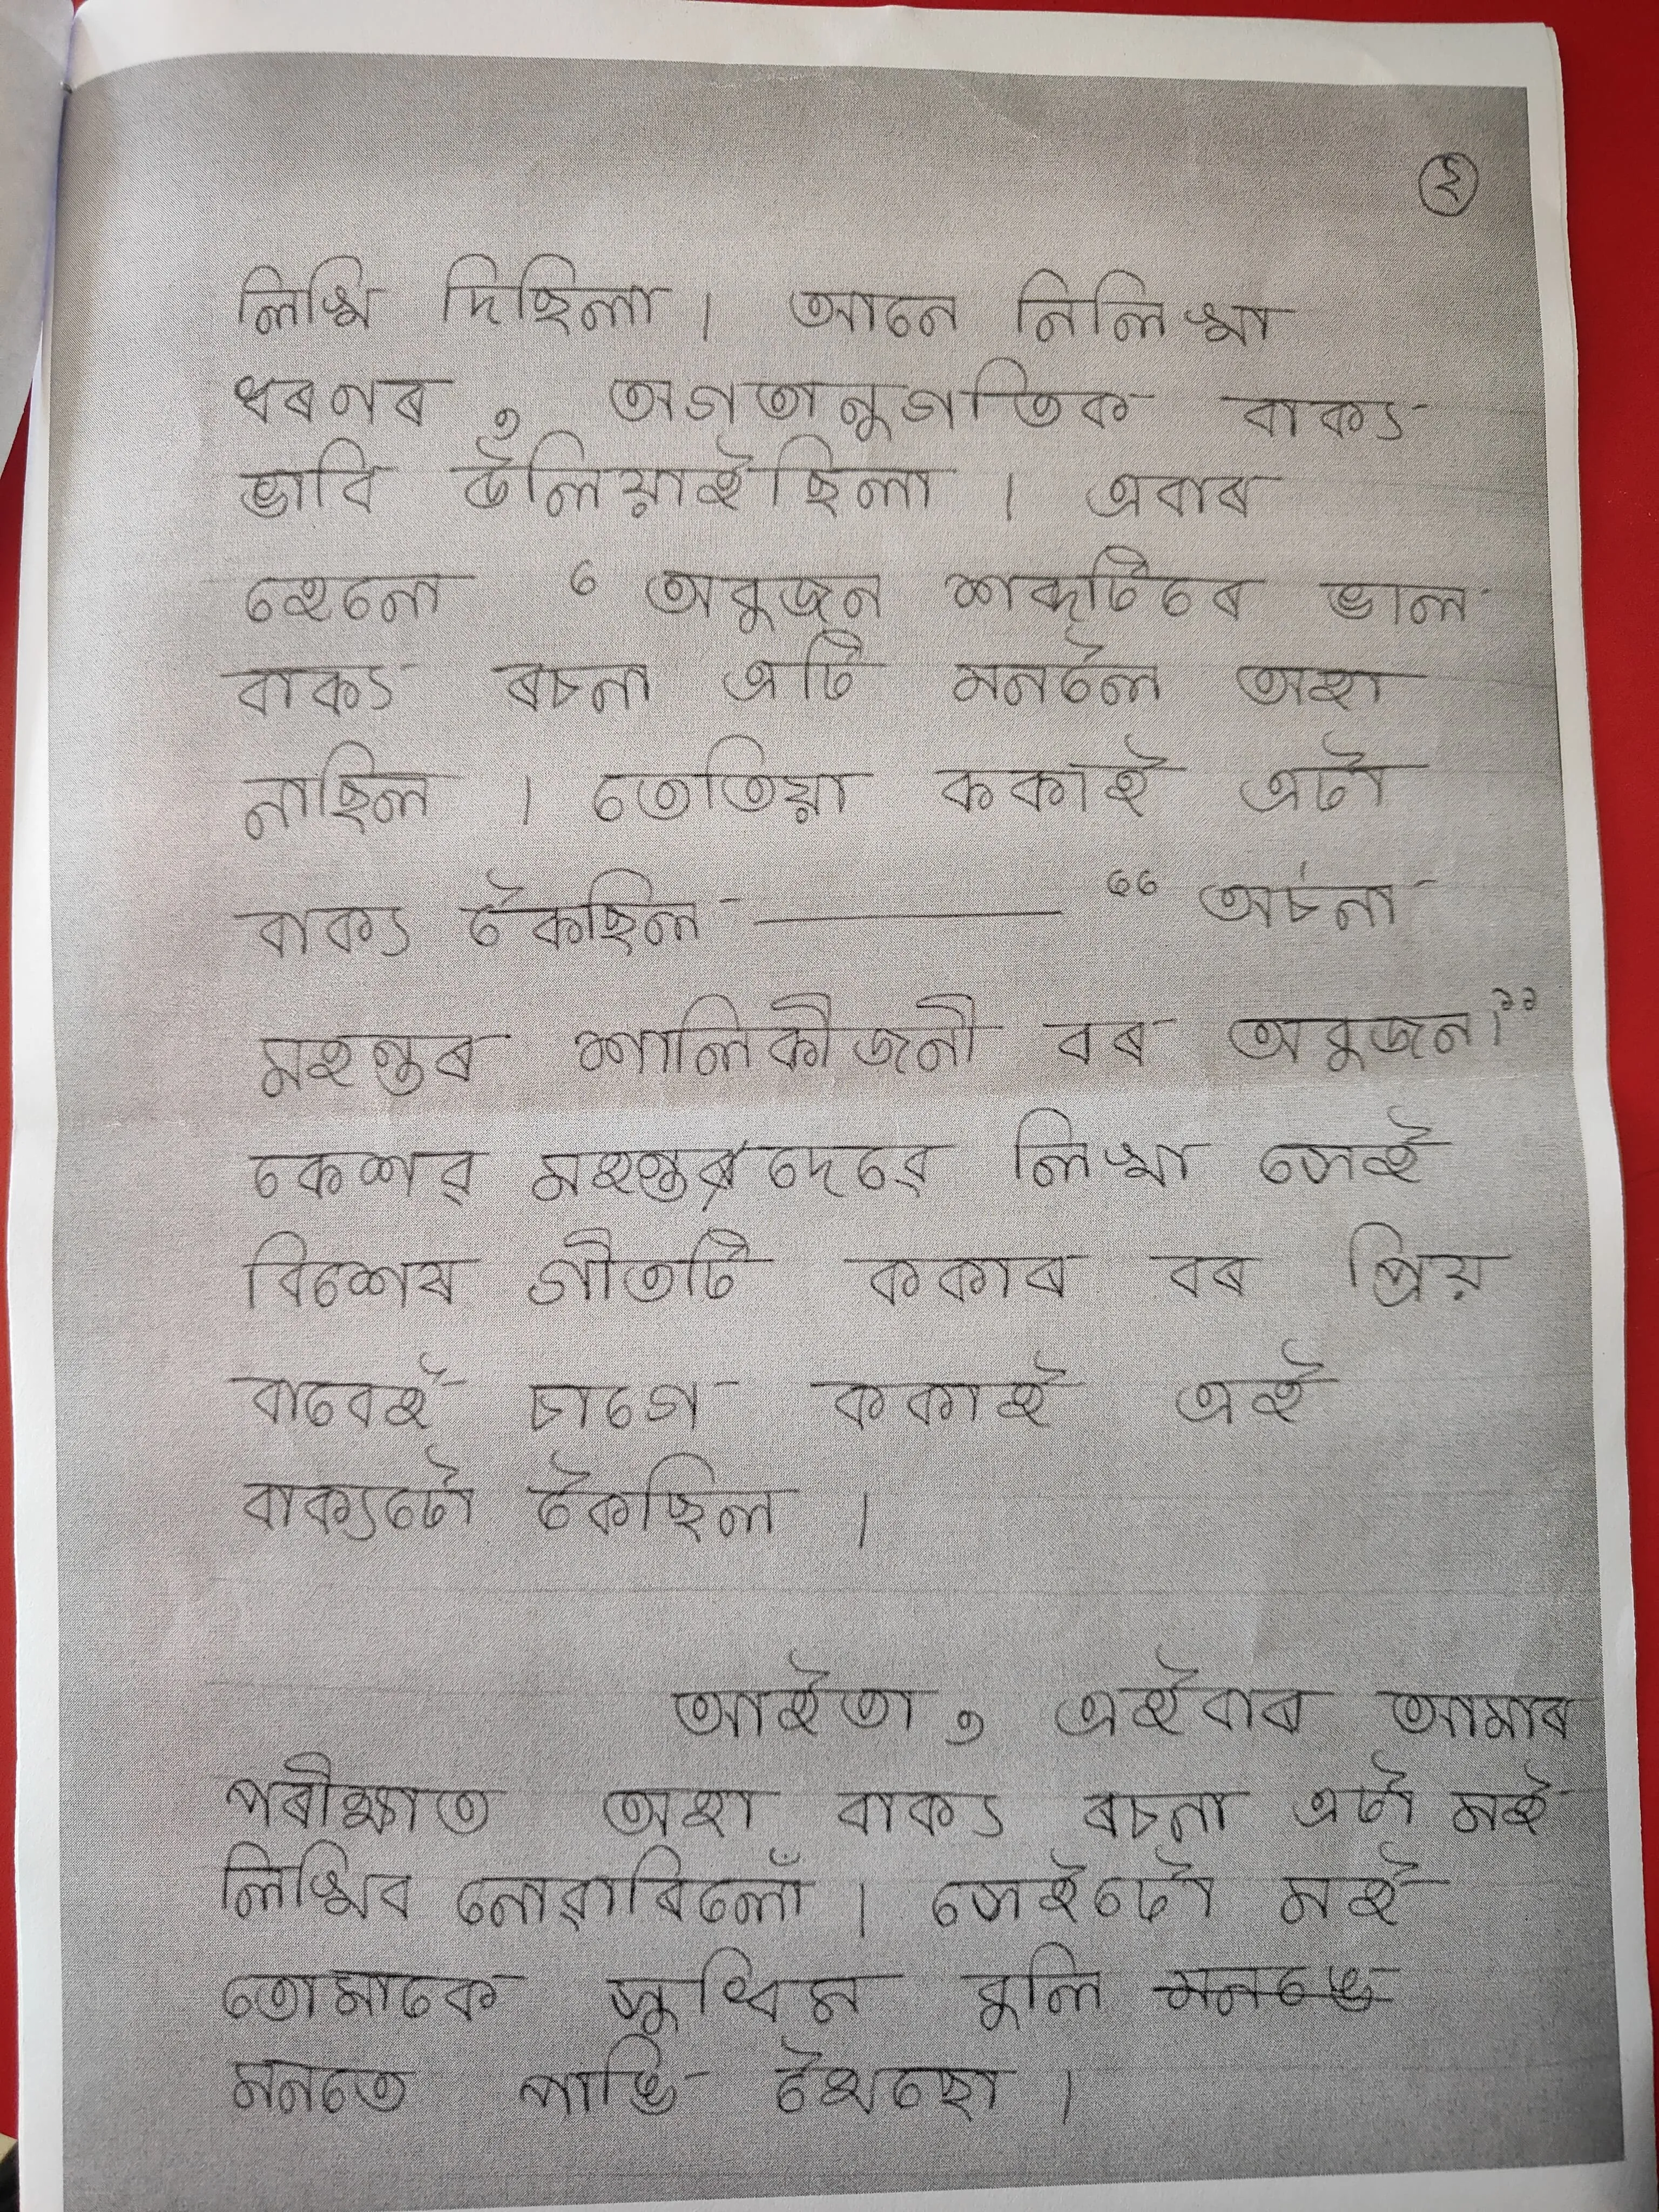 ২
লিখি দিছিলা । আনে নিলিখা
ধৰণৰ , অগতানুগতিক বাক্য
ভাবি উলিয়াইছিলা । এবাৰ
হেনো ‘ অবুজন শব্দটিৰে ভাল
বাক্য ৰচনা এটি মনলৈ অহা
নাছিল । তেতিয়া ককাই এটা
বাক্য কৈছিল ——— “ অৰ্চনা
মহন্তৰ শালিকীজনী বৰ অবুজন।”
কেশৱ মহন্তদেৱে লিখা সেই
বিশেষ গীতটি ককাৰ বৰ প্ৰিয়
বাবেই চাগে ককাই এই
বাক্যটো কৈছিল ।
আইতা , এইবাৰ আমাৰ
পৰীক্ষাত অহা বাক্য ৰচনা এটা মই
লিখিব নোৱাৰিলোঁ । সেইটো মই
তোমাকে সুধিম বুলি
মনতে পাতি থৈছো ।